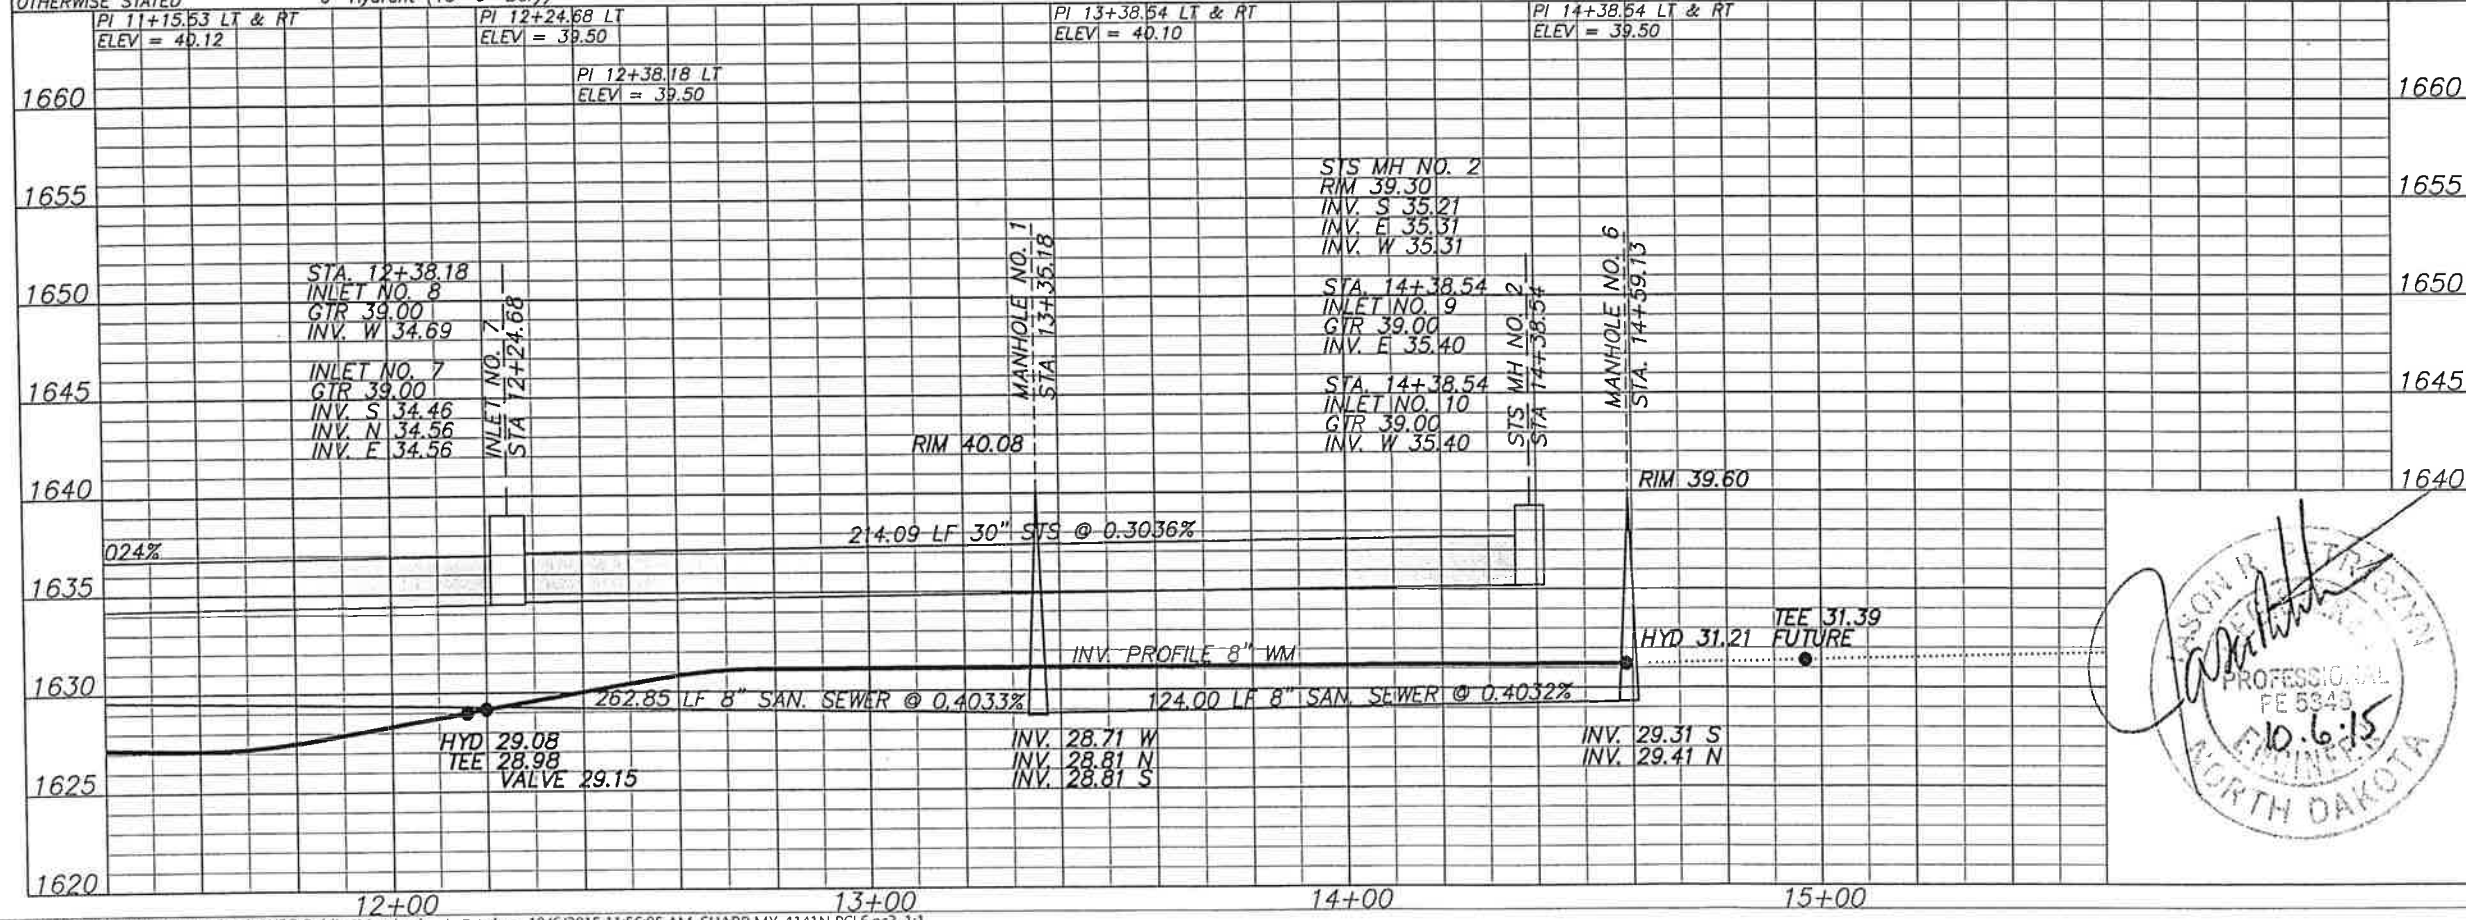 OTHERWISE STATED
PI 11+15.53 LT & RT
ELEV = 40.12
PI 12+24.68 LT
ELEV = 39.50
PI 12+38.18 LT
ELEV = 39.50
PI 13+38.54 LT & RT
ELEV = 40.10
PI 14+38.54 LT & RT
ELEV = 39.50
1660
1655
1650
1645
1640
1635
1630
1625
1620
1660
1655
1650
1645
1640
STA. 12+38.18
INLET NO. 8
GTR 39.00
INV. W 34.69
INLET NO. 7
GTR 39.00
INV. S 34.46
INV. N 34.56
INV. E 34.56
INLET NO. 7
STA 12+24.68
MANHOLE NO. 1
STA 13+35.18
RIM 40.08
STS MH NO. 2
RIM 39.30
INV. S 35.21
INV. E 35.31
INV. W 35.31
STA. 14+38.54
INLET NO. 9
GTR 39.00
INV. E 35.40
STA. 14+38.54
INLET NO. 10
GTR 39.00
INV. W 35.40
STS MH NO. 2
STA 14+38.54
MANHOLE NO. 6
STA. 14+59.13
RIM 39.60
024%
214.09 LF 30" STS @ 0.3036%
INV. PROFILE 8" WM
HYD 31.21
TEE 31.39
FUTURE
262.85 LF 8" SAN. SEWER @ 0.4033%
124.00 LF 8" SAN. SEWER @ 0.4032%
HYD 29.08
TEE 28.98
VALVE 29.15
INV. 28.71 W
INV. 28.81 N
INV. 28.81 S
INV. 29.31 S
INV. 29.41 N
12+00
13+00
14+00
15+00
JASON R.
PROFESSIONAL
PE 5346
10.6.15
ENGINEER
NORTH DAKOTA